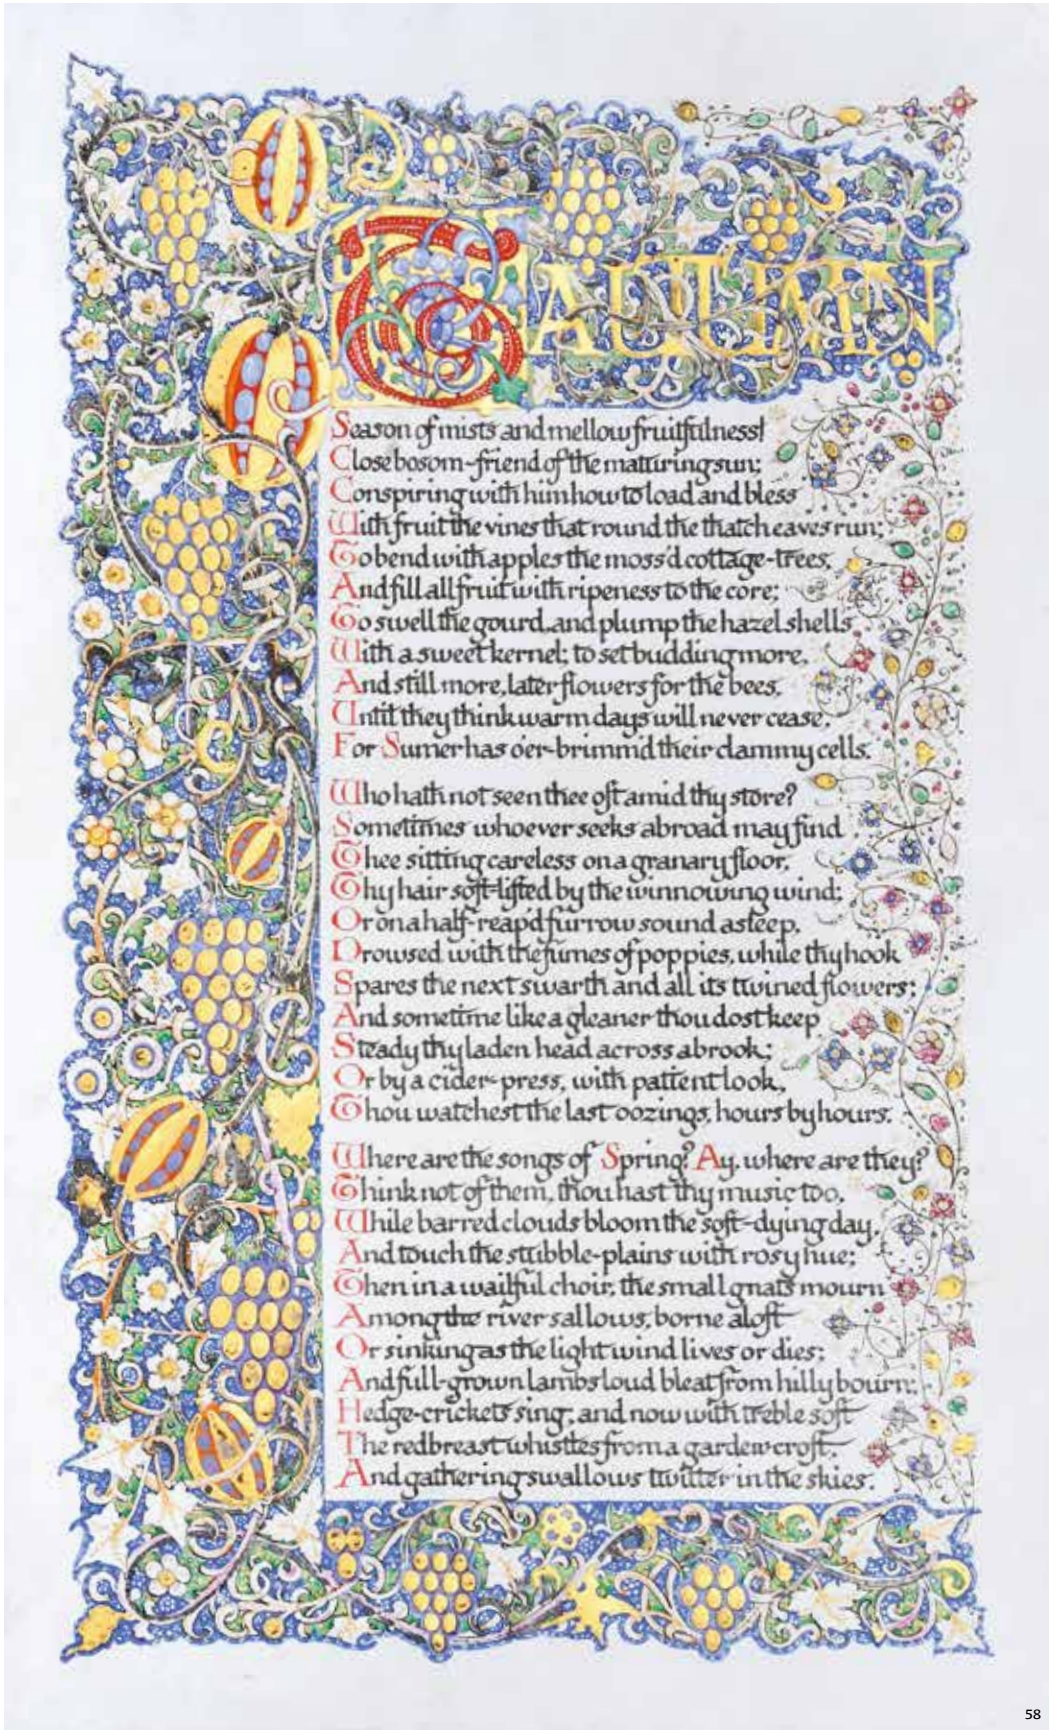 TO AUTUMN
Season of mists and mellow fruitfulness!
Close bosom-friend of the maturing sun;
Conspiring with him how to load and bless
With fruit the vines that round the thatch eaves run;
To bend with apples the moss'd cottage-trees,
And fill all fruit with ripeness to the core;
To swell the gourd, and plump the hazel shells
With a sweet kernel; to set budding more,
And still more, later flowers for the bees,
Until they think warm days will never cease,
For Sumer has o'er-brimm'd their clammy cells.
Who hath not seen thee oft amid thy store?
Sometimes whoever seeks abroad may find
Thee sitting careless on a granary floor,
Thy hair soft-lifted by the winnowing wind;
Or on a half-reap'd furrow sound asleep,
Drowsed with the fumes of poppies, while thy hook
Spares the next swarth and all its twined flowers;
And sometime like a gleaner thou dost keep
Steady thy laden head across a brook;
Or by a cider-press, with patient look,
Thou watchest the last oozings, hours by hours.
Where are the songs of Spring? Ay, where are they?
Think not of them, thou hast thy music too,
While barred clouds bloom the soft-dying day,
And touch the stubble-plains with rosy hue;
Then in a wailful choir, the small gnats mourn
Among the river sallows, borne aloft
Or sinking as the light wind lives or dies;
And full-grown lambs loud bleat from hilly bourn;
Hedge-crickets sing; and now with treble soft
The redbreast whistles from a garden-croft;
And gathering swallows twitter in the skies.
58